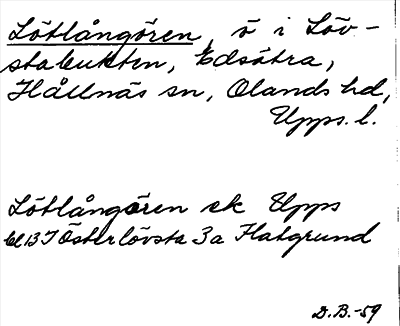 Lötlångören, ö i Löv-
stabukten, Edsätra,
Hållnäs sn, Olands hd,
Upps. l.
Lötlångören ek Upps
bl 13 I Österlövsta 3a Hatgrund
D.B.-59